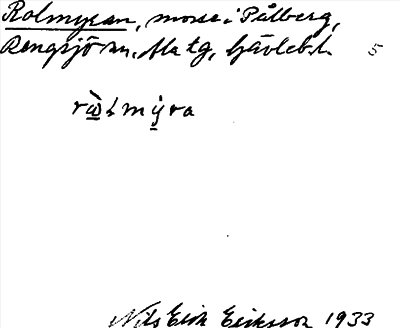 Rolmyran, mosse i Pålberg,
Rengsjö sn, Ala tg, Gävlebl. 5
rὼlmýra
Nils Erik Eriksson 1933